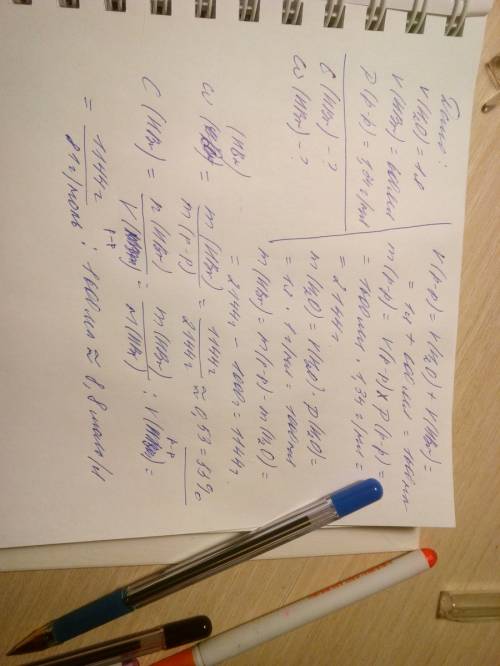 Дано:
V(H₂O) = 1л
V(HBr) = 600мл
ρ(р-р) = 1,34г/мл
C(HBr) - ?
ω(HBr) - ?
V(р-р) = V(H₂O) + V(HBr) =
= 1л + 600мл = 1600мл
m(р-р) = V(р-р) × ρ(р-р) =
= 1600мл · 1,34г/мл =
= 2144г
m(H₂O) = V(H₂O) · ρ(H₂O) =
= 1л · 1г/мл = 1000мл
m(HBr) = m(р-р) - m(H₂O) =
= 2144г - 1000 = 1144г.
ω (HBr) = m(HBr) / m(р-р) = 1144г / 2144г ≈ 0,53 = 53%
C(HBr) = n(HBr) / V р-р = m(HBr) / M(HBr) : V р-р =
= 1144г / 81г/моль : 1600мл ≈ 8,8 моль/л